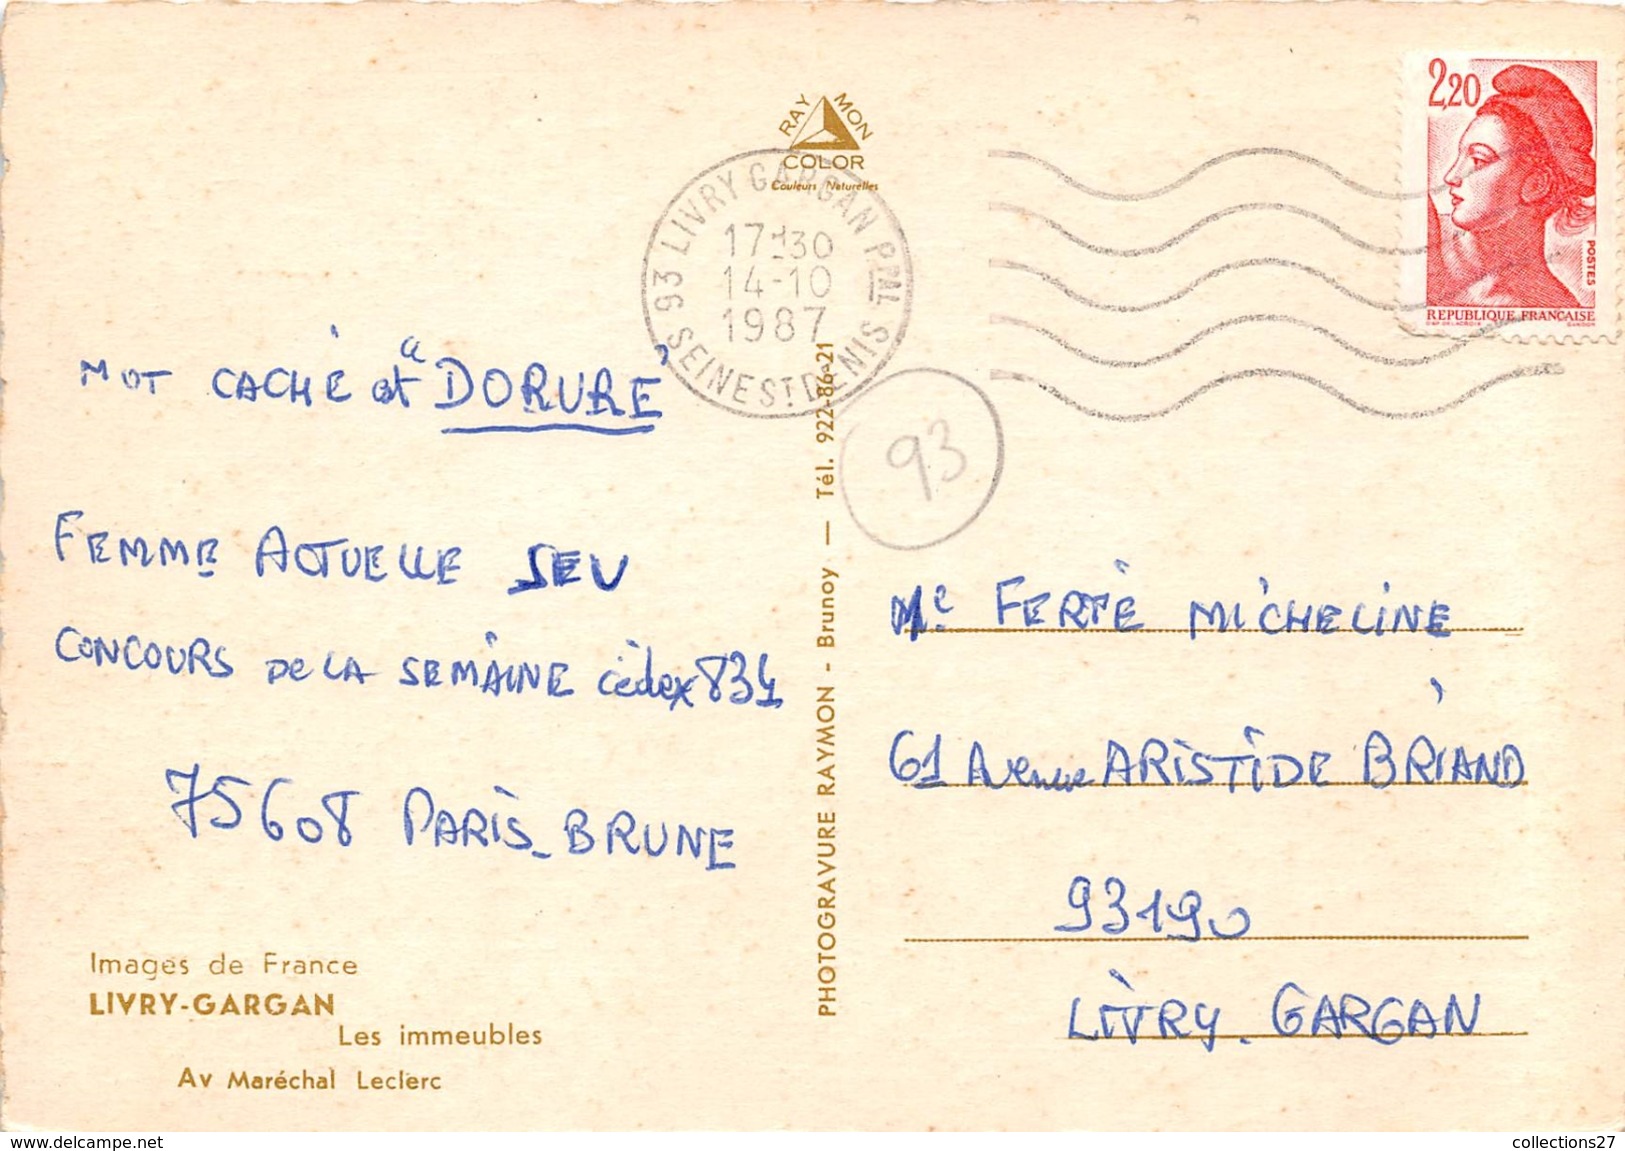 RAYMON
COLOR
Couleurs Naturelles
93 LIVRY GARGAN PPAL
17H30
14-10
1987
SEINE ST DENIS
2,20
POSTES
REPUBLIQUE FRANÇAISE
D'AP. DELACROIX GANDON
MOT CACHÉ est "DORURE"
FEMME ACTUELLE SEV
CONCOURS DE LA SEMAINE Cèdex 834
75608 PARIS-BRUNE
Images de France
LIVRY-GARGAN
Les immeubles
Av Maréchal Leclerc
PHOTOGRAVURE RAYMON - Brunoy — Tél. 922-86-21
93
Me FERTÉ MICHELINE
61 Avenue ARISTIDE BRIAND
93190
LIVRY-GARGAN
collections27